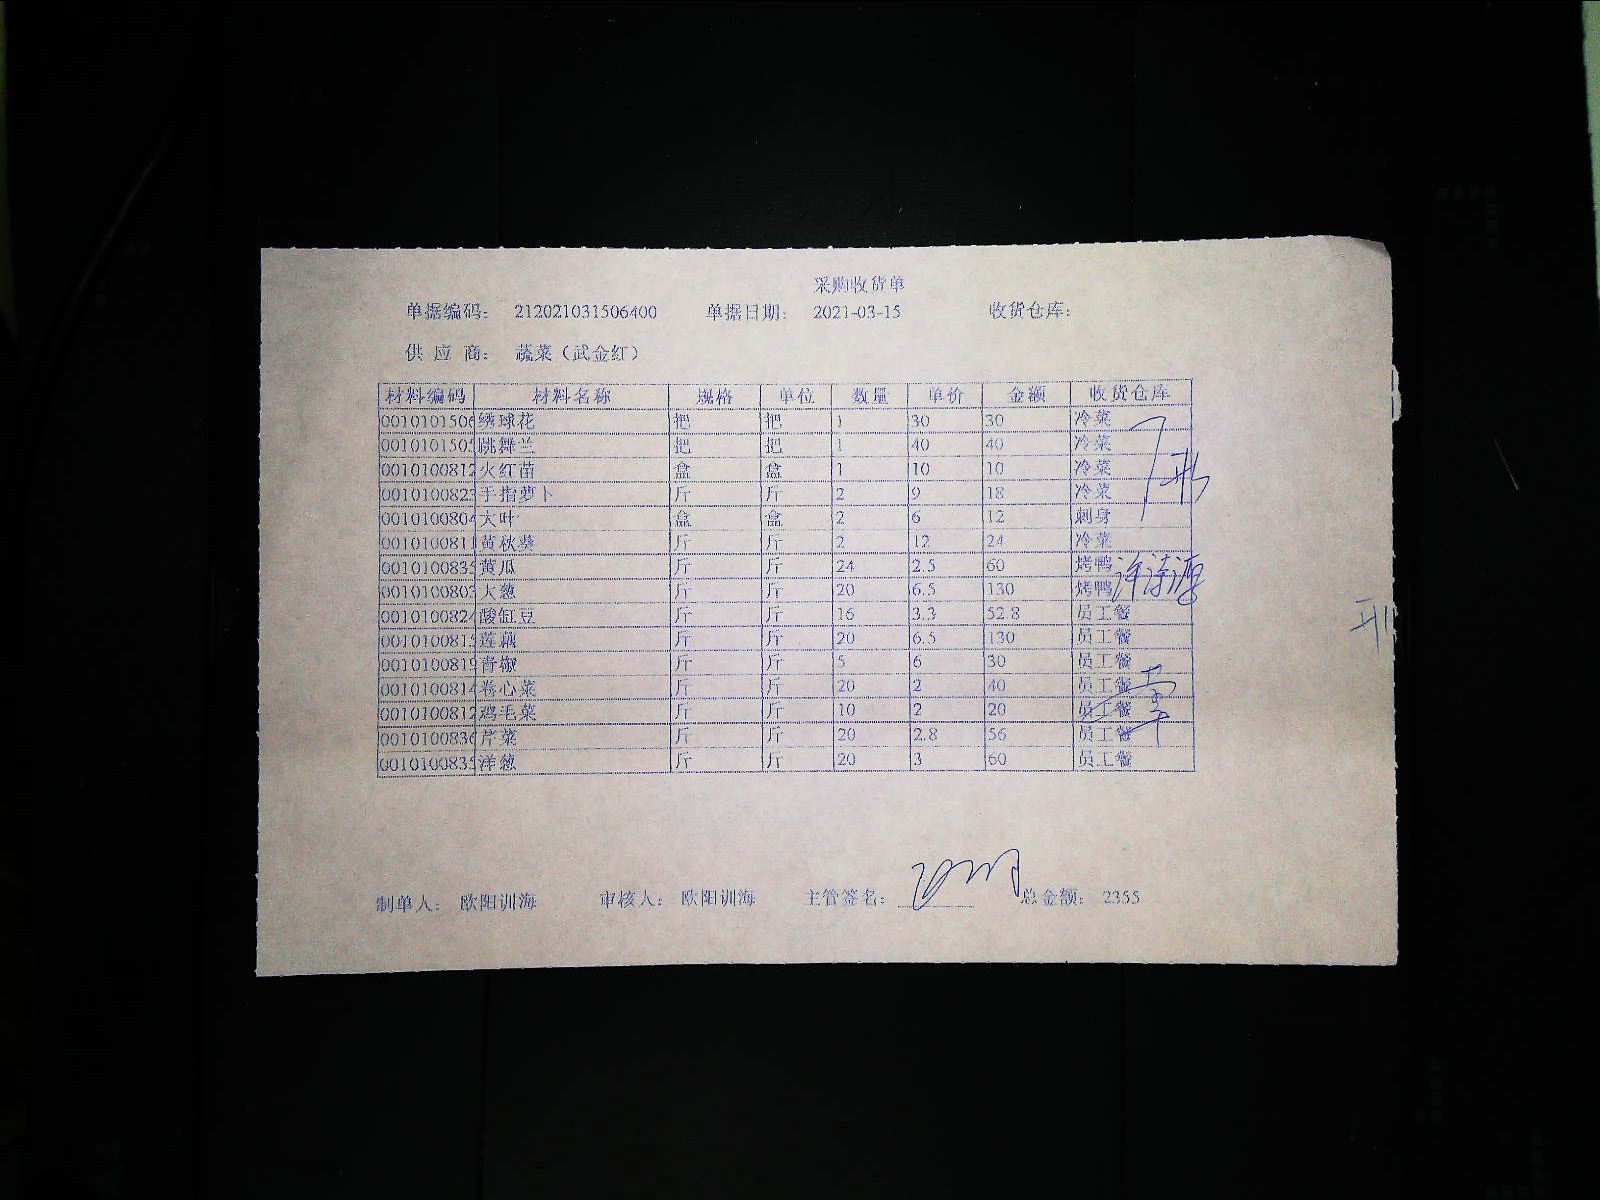 采购收货单
单据编码: 212021031506400 单据日期: 2021-03-15 收货仓库:
供 应 商: 蔬菜（武金红）
材料编码 材料名称 规格 单位 数量 单价 金额 收货仓库
0010101506 绣球花 把 把 1 30 30 冷菜
0010101505 跳舞兰 把 把 1 40 40 冷菜
0010100812 火红苗 盒 盒 1 10 10 冷菜
0010100823 手指萝卜 斤 斤 2 9 18 冷菜
0010100804 大叶 盒 盒 2 6 12 刺身
0010100811 黄秋葵 斤 斤 2 12 24 冷菜
0010100835 黄瓜 斤 斤 24 2.5 60 烤鸭
0010100803 大葱 斤 斤 20 6.5 130 烤鸭
0010100824 酸缸豆 斤 斤 16 3.3 52.8 员工餐
0010100815 莲藕 斤 斤 20 6.5 130 员工餐
0010100819 青椒 斤 斤 5 6 30 员工餐
0010100814 卷心菜 斤 斤 20 2 40 员工餐
0010100812 鸡毛菜 斤 斤 10 2 20 员工餐
0010100836 芹菜 斤 斤 20 2.8 56 员工餐
0010100835 洋葱 斤 斤 20 3 60 员工餐
制单人: 欧阳训海 审核人: 欧阳训海 主管签名: 总金额: 2355